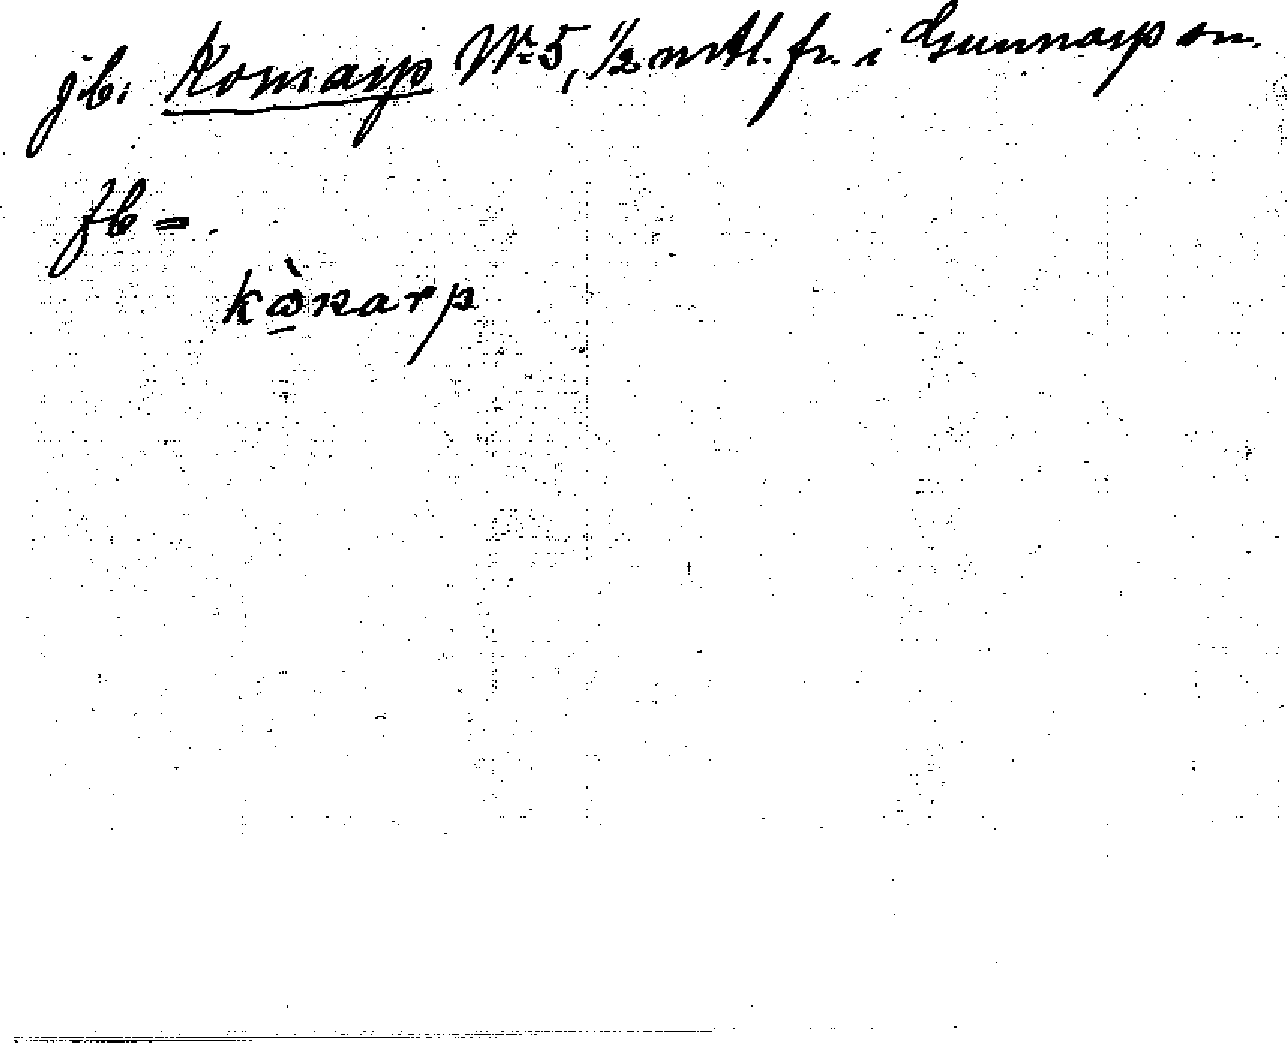 jb. Konarp No 5, 1/2 mtl. fr. i Gunnarp sn.
fb =.
kònarp